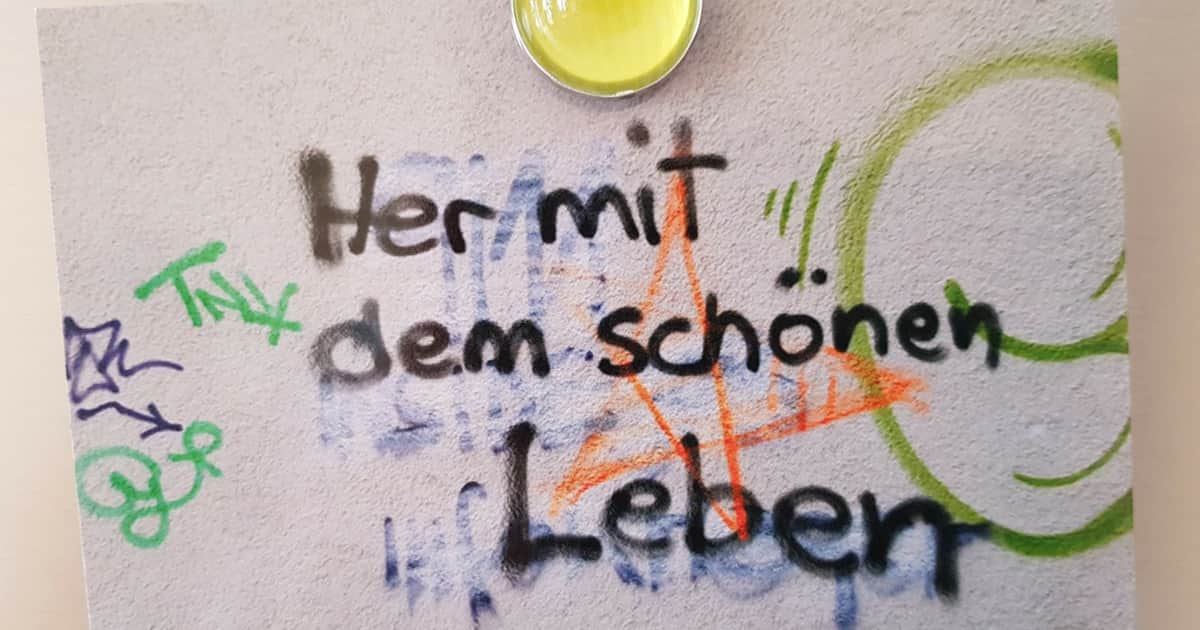 Her mit
dem schönen
Leben
TNX